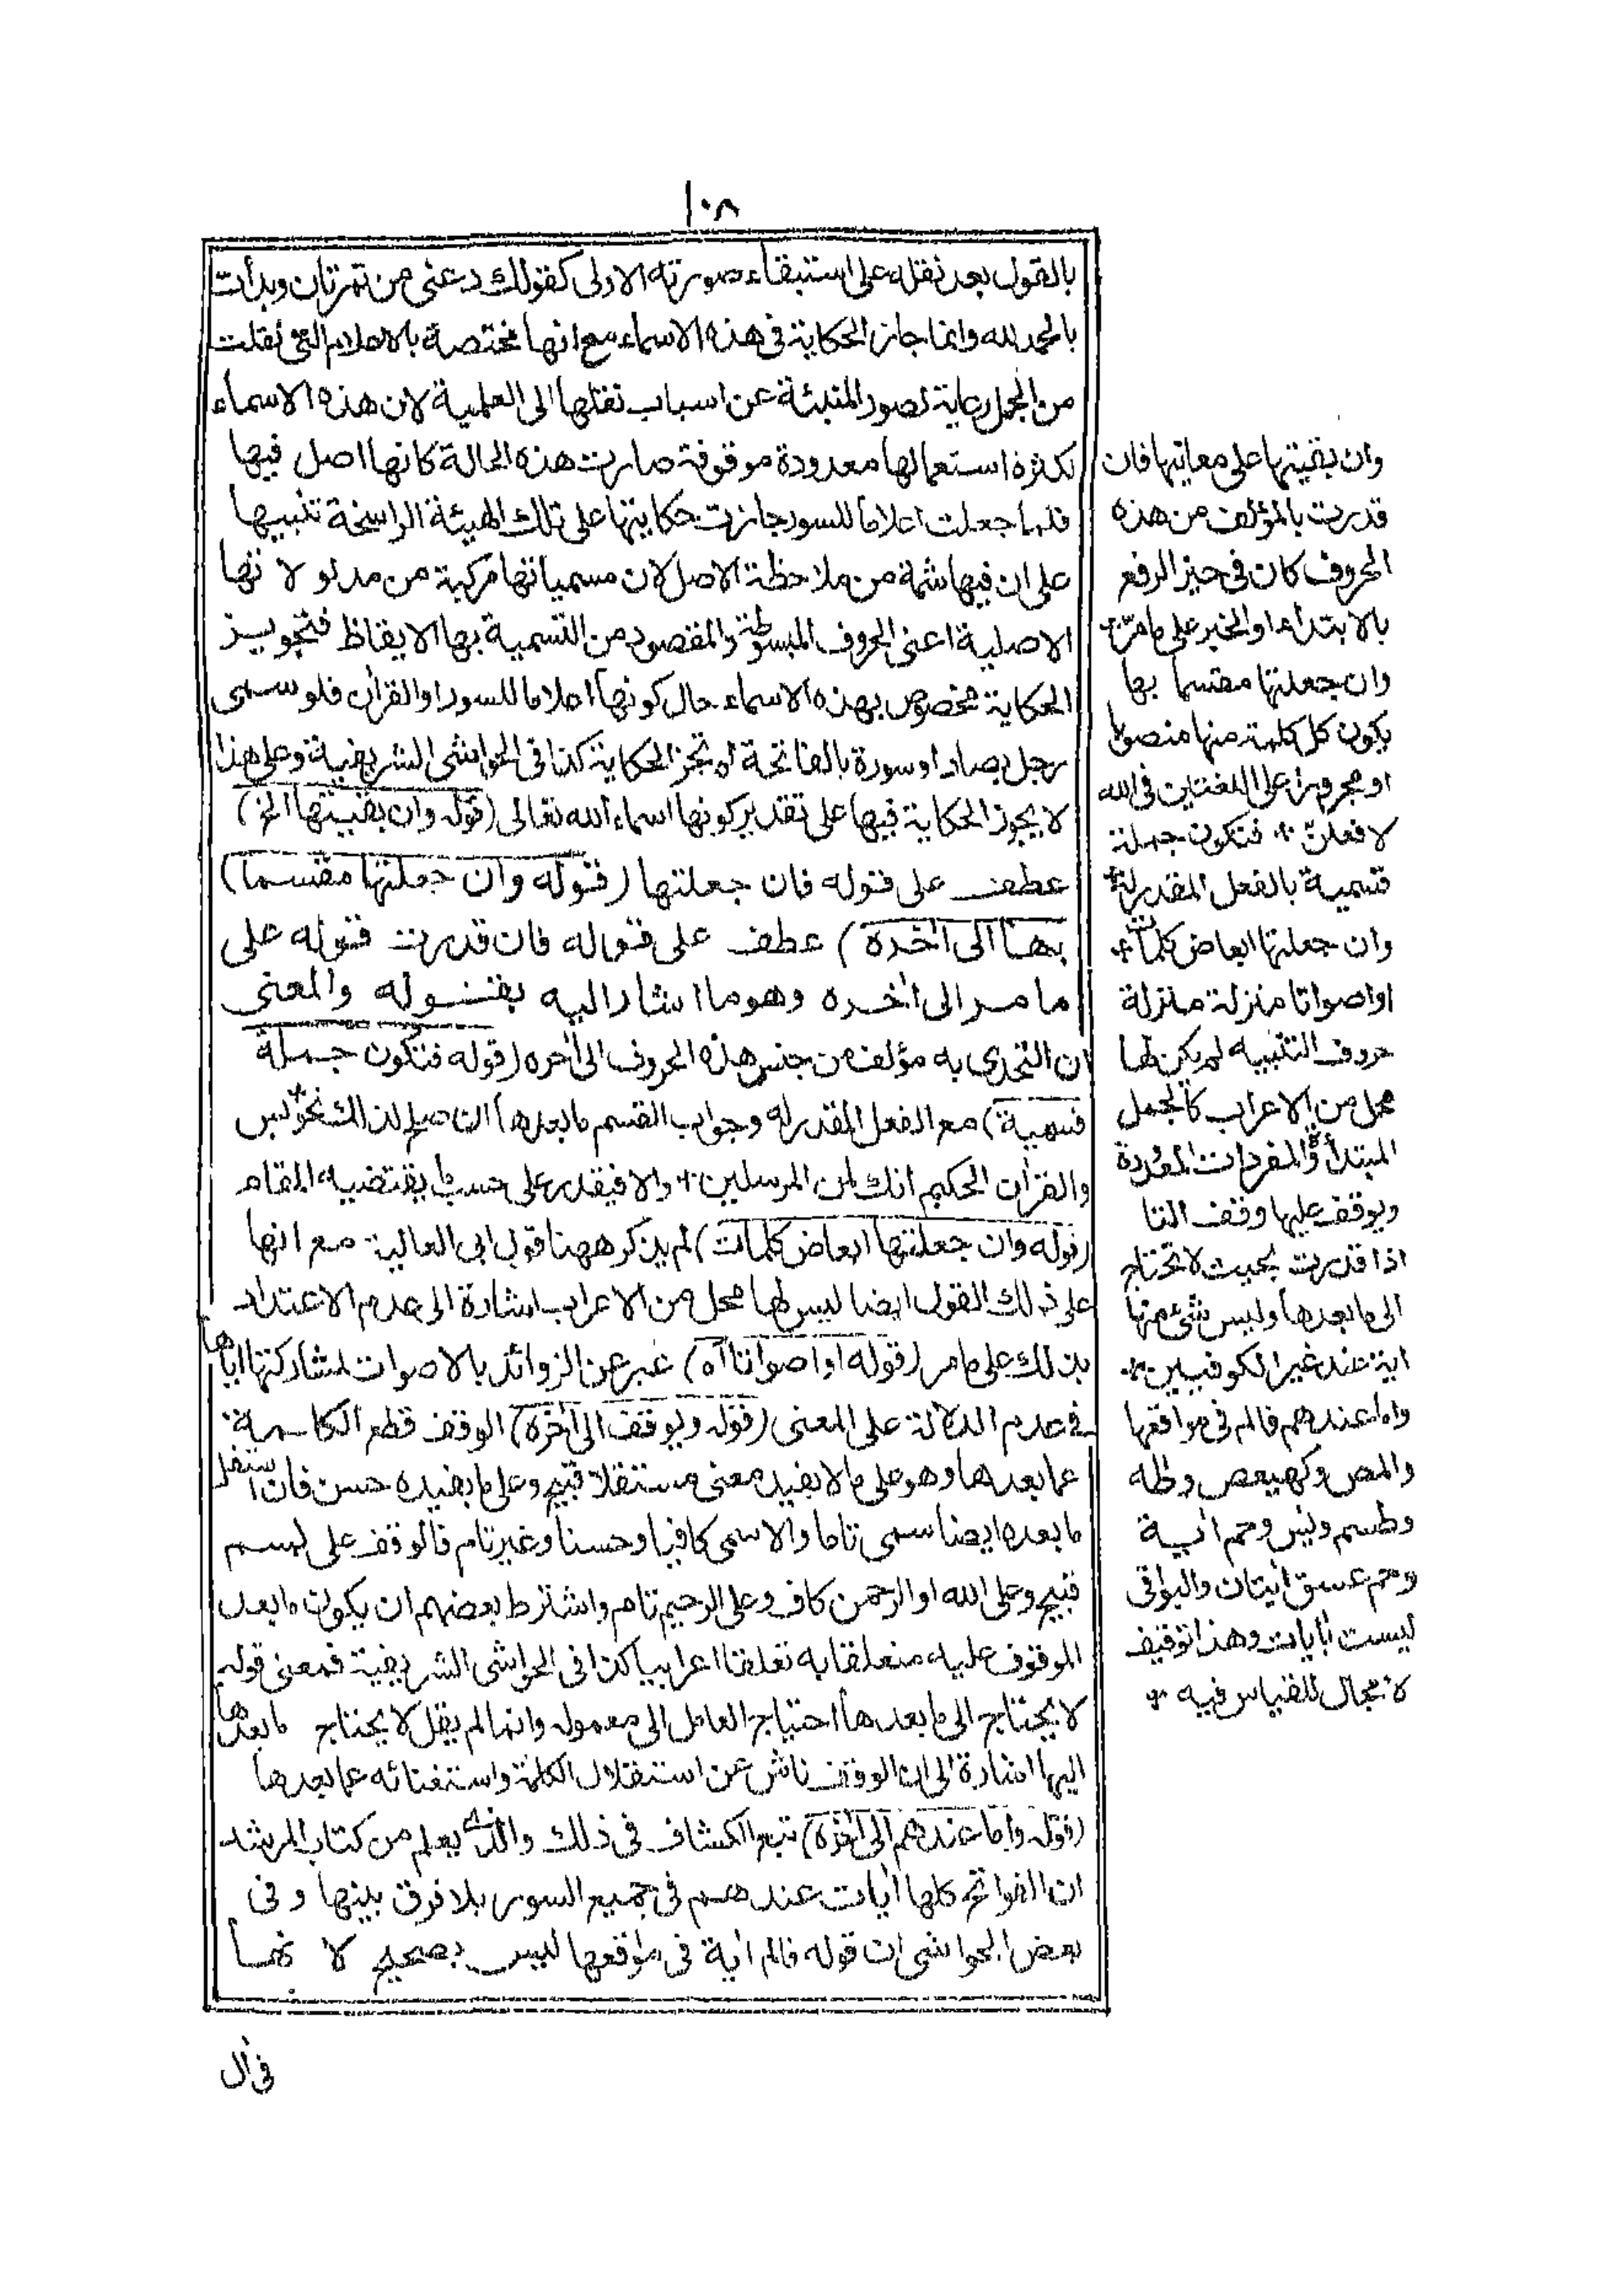 ١٠٨
بالقول بعد نقله على استبقاء صورته الاولى كقولك دعنى من تمرتان وبدأت
بالحمد لله وانما جاز الحكاية فى هذه الاسماء مع انها مختصة بالاعلام التى نقلت
من الجمل رعاية لصور المنبئة عن اسباب نقلها الى العلمية لان هذه الاسماء
لكثرة استعمالها معدودة موقوفة صارت هذه الحالة كانها اصل فيها
فلما جعلت اعلاما للسور جازت حكايتها على تلك الهيئة الراسخة تنبيها
على ان فيها شمة من ملاحظة الاصل لان مسمياتها مركبة من مدلولاتها
الاصلية اعنى الحروف المبسوطة والمقصود من التسمية بها الايقاظ فتجويز
الحكاية مخصوص بهذه الاسماء حال كونها اعلاما للسور او القرأن فلو سمى
رجل بصاد او سورة بالفاتحة لم تجز الحكاية كذا فى الحواشى الشريفية وعلى هذا
لا يجوز الحكاية فيها على تقدير كونها اسماء الله تعالى (قوله وان بقيتها الخ)
عطف على قوله فان جعلتها (قوله وان جعلتها مقسما)
بها الى أخره) عطف على قوله فان قدرت قوله على
ما مر الى أخره وهو ما اشار اليه بقوله والمعنى
ان التحدى به مؤلف من جنس هذه الحروف الى أخره (قوله فتكون جملة
قسمية) مع الفعل المقدر له وجواب القسم ما بعدها ان صلح لذلك نحو يس
والقرأن الحكيم انك لمن المرسلين والا فيقدر على حسب ما يقتضيه المقام
(قوله وان جعلتها ابعاض كلمات) لم يذكر ههنا قول ابى العالية مع انها
على ذلك القول ايضا ليس لها محل من الاعراب اشارة الى عدم الاعتداد
بذلك على ما مر (قوله او اصواتا اه) عبر عن الزوائد بالاصوات لمشاركتها اياها
فى عدم الدلالة على المعنى (قوله ويوقف الى أخره) الوقف قطع الكلمة
عما بعدها وهو على ما لا يفيد معنى مستقلا قبيح وعلى ما يفيده حسن فان استقل
ما بعده ايضا سمى تاما والا سمى كافيا وحسنا وغير تام فالوقف على بسم
قبيح وعلى الله او الرحمن كاف وعلى الرحيم تام واشترط بعضهم ان يكون ما بعد
الموقوف عليه متعلقا به تعلقا اعرابيا كذا فى الحواشى الشريفية فمعنى قوله
لا يحتاج الى ما بعدها احتياج العامل الى معموله وانما لم يقل لا يحتاج ما بعدها
اليها اشارة الى ان الوقف ناش عن استقلال الكلمة واستغنائه عما بعدها
(قوله واما عندهم الى أخره) تبع الكشاف فى ذلك والذى يعلم من كتاب المرشد
ان الفواتح كلها أيات عندهم فى جميع السور بلا فرق بينها وفى
بعض الحواشى ان قوله فالم أية فى مواقعها ليس بصحيح لانها
فى أل
وان بقيتها على معانيها فان
قدرت بالمؤلف من هذه
الحروف كان فى حيز الرفع
بالابتداء او الخبر على ما مر
وان جعلتها مقسما بها
يكون كل كلمة منها منصوبا
او مجرورا على اللغتين فى الله
لافعلن فتكون جملة
قسمية بالفعل المقدر له
وان جعلتها ابعاض كلمات
او اصواتا منزلة منزلة
حروف التنبيه لم يكن لها
محل من الاعراب كالجمل
المبتدأة والمفردات المعدودة
ويوقف عليها وقف التا
اذا قدرت بحيث لا تحتاج
الى ما بعدها وليس شئ منها
اية عند غير الكوفيين
واما عندهم فالم فى مواقعها
والمص وكهيعص وطه
وطسم ويس وحم أية
وحم عسق أيتان والبواقى
ليست بأيات وهذا توقيف
لا مجال للقياس فيه